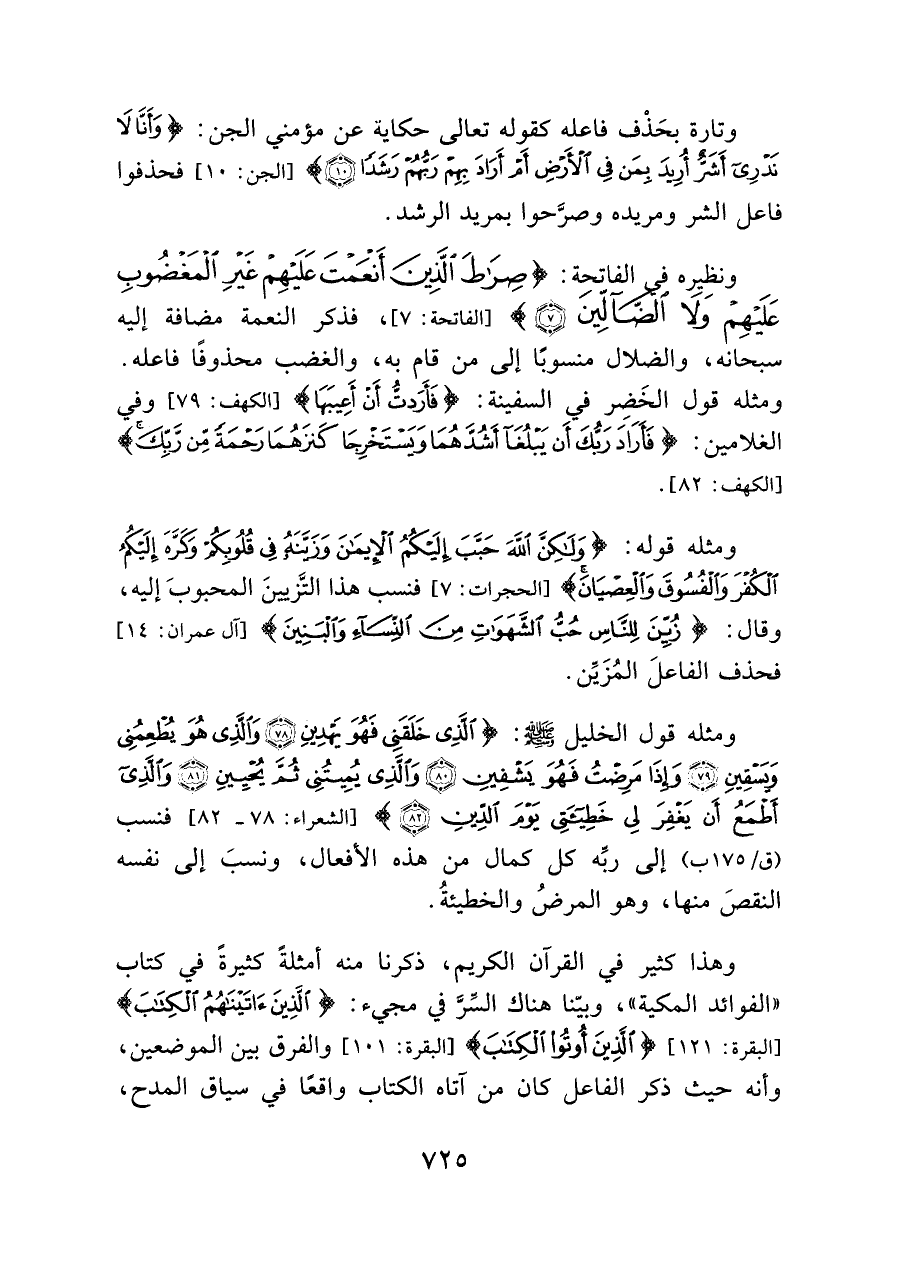 وتارة بحَذْف فاعله كقوله تعالى حكاية عن مؤمني الجن: ﴿ وَأَنَّا لَا
نَدْرِىٓ أَشَرٌّ أُرِيدَ بِمَن فِى ٱلْأَرْضِ أَمْ أَرَادَ بِهِمْ رَبُّهُمْ رَشَدًا ١٠ ﴾ [الجن: ١٠] فحذفوا
فاعل الشر ومريده وصرَّحوا بمريد الرشد.
ونظيره في الفاتحة: ﴿ صِرَٰطَ ٱلَّذِينَ أَنْعَمْتَ عَلَيْهِمْ غَيْرِ ٱلْمَغْضُوبِ
عَلَيْهِمْ وَلَا ٱلضَّآلِّينَ ٧ ﴾ [الفاتحة: ٧]، فذكر النعمة مضافة إليه
سبحانه، والضلال منسوبًا إلى من قام به، والغضب محذوفًا فاعله.
ومثله قول الخَضِر في السفينة: ﴿ فَأَرَدتُّ أَنْ أَعِيبَهَا ﴾ [الكهف: ٧٩] وفي
الغلامين: ﴿ فَأَرَادَ رَبُّكَ أَن يَبْلُغَآ أَشُدَّهُمَا وَيَسْتَخْرِجَا كَنزَهُمَا رَحْمَةً مِّن رَّبِّكَ ۚ ﴾
[الكهف: ٨٢].
ومثله قوله: ﴿ وَلَٰكِنَّ ٱللَّهَ حَبَّبَ إِلَيْكُمُ ٱلْإِيمَٰنَ وَزَيَّنَهُۥ فِى قُلُوبِكُمْ وَكَرَّهَ إِلَيْكُمُ
ٱلْكُفْرَ وَٱلْفُسُوقَ وَٱلْعِصْيَانَ ۚ ﴾ [الحجرات: ٧] فنسب هذا التَّزيينَ المحبوبَ إليه،
وقال: ﴿ زُيِّنَ لِلنَّاسِ حُبُّ ٱلشَّهَوَٰتِ مِنَ ٱلنِّسَآءِ وَٱلْبَنِينَ ﴾ [آل عمران: ١٤]
فحذف الفاعلَ المُزَيِّن.
ومثله قول الخليل ﷺ: ﴿ ٱلَّذِى خَلَقَنِى فَهُوَ يَهْدِينِ ٧٨ وَٱلَّذِى هُوَ يُطْعِمُنِى
وَيَسْقِينِ ٧٩ وَإِذَا مَرِضْتُ فَهُوَ يَشْفِينِ ٨٠ وَٱلَّذِى يُمِيتُنِى ثُمَّ يُحْيِينِ ٨١ وَٱلَّذِىٓ
أَطْمَعُ أَن يَغْفِرَ لِى خَطِيٓـَٔتِى يَوْمَ ٱلدِّينِ ٨٢ ﴾ [الشعراء: ٧٨ ـ ٨٢] فنسب
(ق/١٧٥ب) إلى ربِّه كل كمال من هذه الأفعال، ونسبَ إلى نفسه
النقصَ منها، وهو المرضُ والخطيئةُ.
وهذا كثير في القرآن الكريم، ذكرنا منه أمثلةً كثيرةً في كتاب
«الفوائد المكية»، وبيّنا هناك السِّرَّ في مجيء: ﴿ ٱلَّذِينَ ءَاتَيْنَٰهُمُ ٱلْكِتَٰبَ ﴾
[البقرة: ١٢١] ﴿ ٱلَّذِينَ أُوتُوا۟ ٱلْكِتَٰبَ ﴾ [البقرة: ١٠١] والفرق بين الموضعين،
وأنه حيث ذكر الفاعل كان من آتاه الكتاب واقعًا في سياق المدح،
٧٢٥